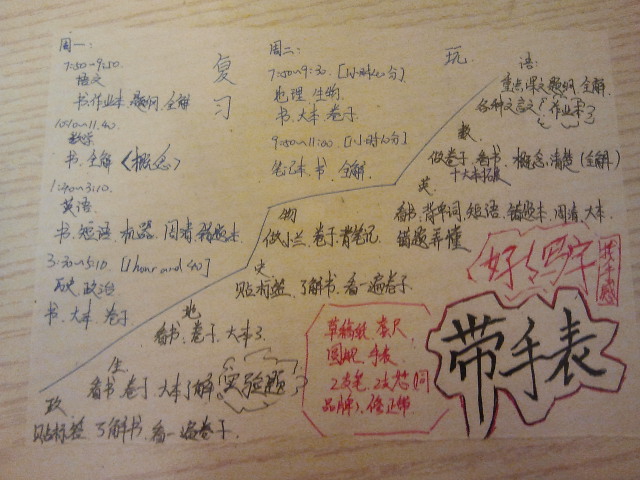 周一：
7:50~9:50.
语文
书.作业本.题纲.全解
10:10~11.40.
数学
书.全解《概念》
1:40~3:10.
英语
书.短语.机器.周考.错题本
3:30~5:10 [1 hour and 40]
历史 政治
书.大本.卷子
复习
周二：
7:50~9:30. [1小时40分]
地理 生物
书.大本.卷子
9:50~11:00. [1小时10分]
笔记本.书.全解.
玩.
语:
重点课文.题纲.全解.
各种文言文!作业本3
数.
做卷子.看书.概念.清楚(全解)
十大本拓展
英.
看书.背单词.短语.错题本.周考.大本.
错题弄懂
物
做小兰.卷子.背笔记
史
贴标签.了解书.看一遍卷子.
地
看书.卷子.大本3.
生.
看书.卷子.大本了解.实验题
政
贴标签.了解书.看一遍卷子.
好好写字
找手感
草稿纸.套尺
圆规.手表.
2支笔.2支芯(同
品牌).修正带
带手表